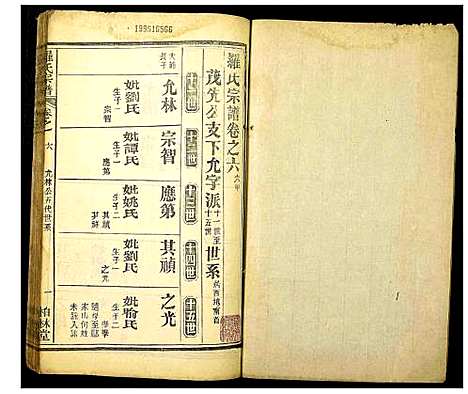 199516566
羅氏宗譜卷之六
茂先公支下允字派十一世至十五世世系
十一世
允林
妣劉氏
生子一
宗智
十二世
宗智
妣譚氏
生子一
應第
十三世
應第
妣姚氏
生子二
其禎
十四世
其禎
妣劉氏
生子一
之光
十五世
之光
妣喻氏
生子二
羅氏宗譜
卷之
六
允林公五代世系
一
柏林堂